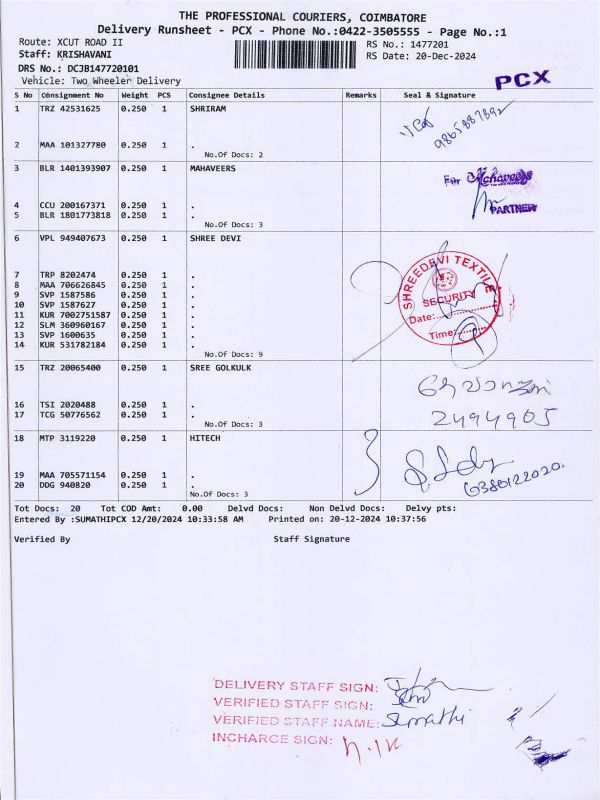 THE PROFESSIONAL COURIERS, COIMBATORE
Delivery Runsheet - PCX - Phone No.:0422-3505555 - Page No.:1
Route: XCUT ROAD II
RS No.: 1477201
Staff: KRISHAVANI
RS Date: 20-Dec-2024
DRS No.: DCJB147720101
Vehicle: Two Wheeler Delivery
PCX
S No Consignment No Weight PCS Consignee Details Remarks Seal & Signature
1 TRZ 42531625 0.250 1 SHRIRAM
2 MAA 101327780 0.250 1 .
No.Of Docs: 2
3 BLR 1401393907 0.250 1 MAHAVEERS
For Mahaveers
4 CCU 200167371 0.250 1 .
PARTNER
5 BLR 1801773818 0.250 1 .
No.Of Docs: 3
6 VPL 949407673 0.250 1 SHREE DEVI
7 TRP 8202474 0.250 1 .
8 MAA 706626845 0.250 1 .
9 SVP 1587586 0.250 1 .
10 SVP 1587627 0.250 1 .
11 KUR 7002751587 0.250 1 .
12 SLM 360960167 0.250 1 .
13 SVP 1600635 0.250 1 .
14 KUR 531782184 0.250 1 .
No.Of Docs: 9
SHREEDEVI TEXTILE
SECURITY
Date:
Time:
15 TRZ 20065400 0.250 1 SREE GOLKULK
16 TSI 2020488 0.250 1 .
17 TCG 50776562 0.250 1 .
No.Of Docs: 3
2494905
18 MTP 3119220 0.250 1 HITECH
19 MAA 705571154 0.250 1 .
20 DDG 940820 0.250 1 .
No.Of Docs: 3
6380122020.
Tot Docs: 20 Tot COD Amt: 0.00 Delvd Docs: Non Delvd Docs: Delvy pts:
Entered By :SUMATHIPCX 12/20/2024 10:33:58 AM Printed on: 20-12-2024 10:37:56
Verified By Staff Signature
DELIVERY STAFF SIGN:
VERIFIED STAFF SIGN:
VERIFIED STAFF NAME: Sumathi
INCHARGE SIGN: